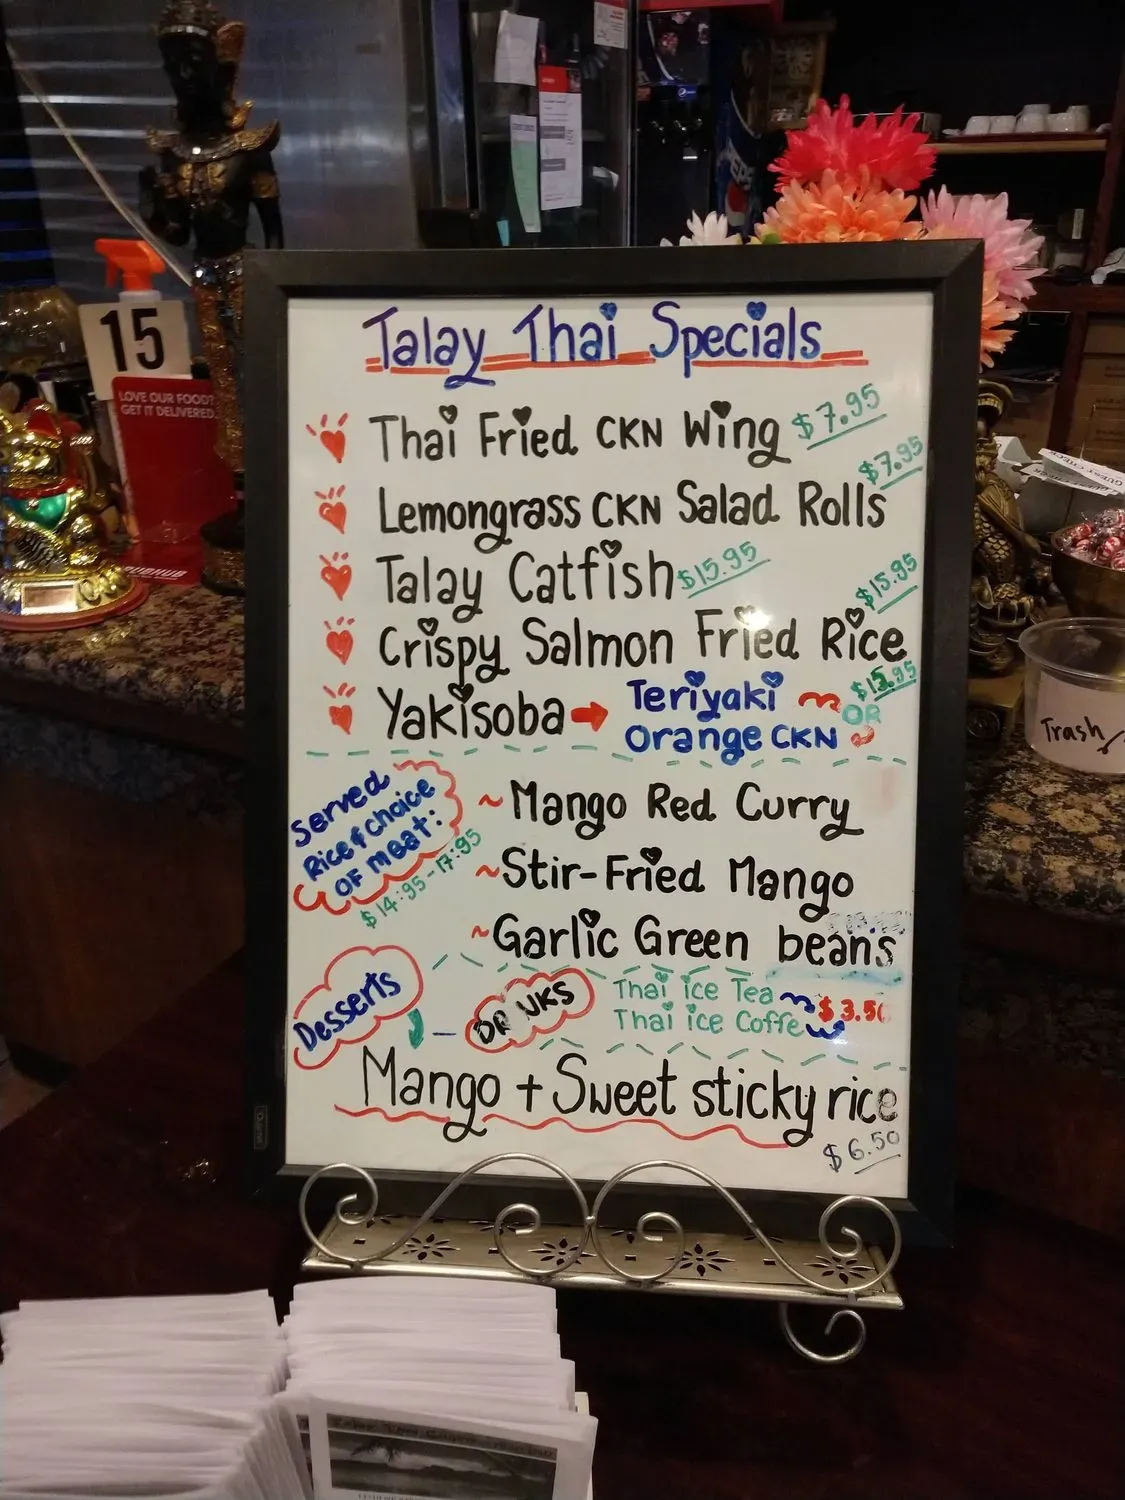 15
LOVE OUR FOOD?
GET IT DELIVERED.
GRUBHUB
PEPSI
Talay Thai Specials
Thai Fried CKN Wing $7.95
$7.95
Lemongrass CKN Salad Rolls
Talay Catfish $15.95
$15.95
Crispy Salmon Fried Rice
Yakisoba → Teriyaki
OR
Orange CKN
Served
Rice & choice
OF meat:
$14:95-17:95
~Mango Red Curry
~Stir-Fried Mango
~Garlic Green beans
Desserts
DRINKS
Thai ice Tea
Thai ice Coffe
Mango + Sweet sticky rice
$6.50
Trash
GUEST CHECK